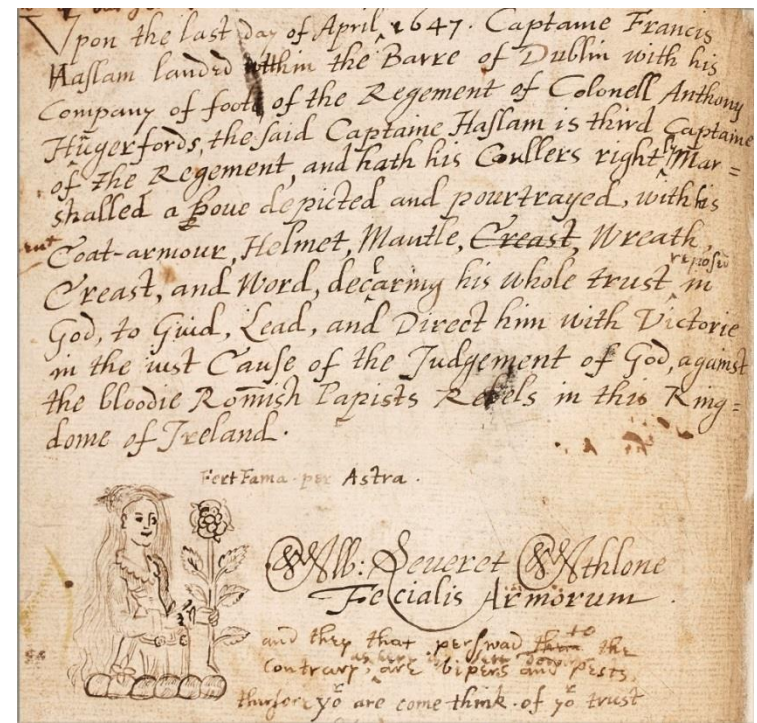 Vpon the last day of April, 1647. Captaine Francis
Haslam landed within the Barre of Dublin with his
Company of foote of the Regement of Colonell Anthony
Hūgerfords, the said Captaine Haslam is third Captaine
of the Regement, and hath his Coullers right Mar=
shalled a boue depicted and pourtrayed, with his
Coat-armour, Helmet, Mantle, Creast, Wreath,
Creast, and Word, decaring his whole trust reposed in
God, to Guid, Lead, and Direct him with Victorie
in the iust Cause of the Judgement of God, against
the bloodie Romish Papists Rebels in this King=
dome of Ireland.
Fert Fama per Astra.
Alb: Leueret Athlone
Fecialis Armorum.
and they that perswad to the
contrary, are vipers and pests,
thurfore yo are come think of yo trust